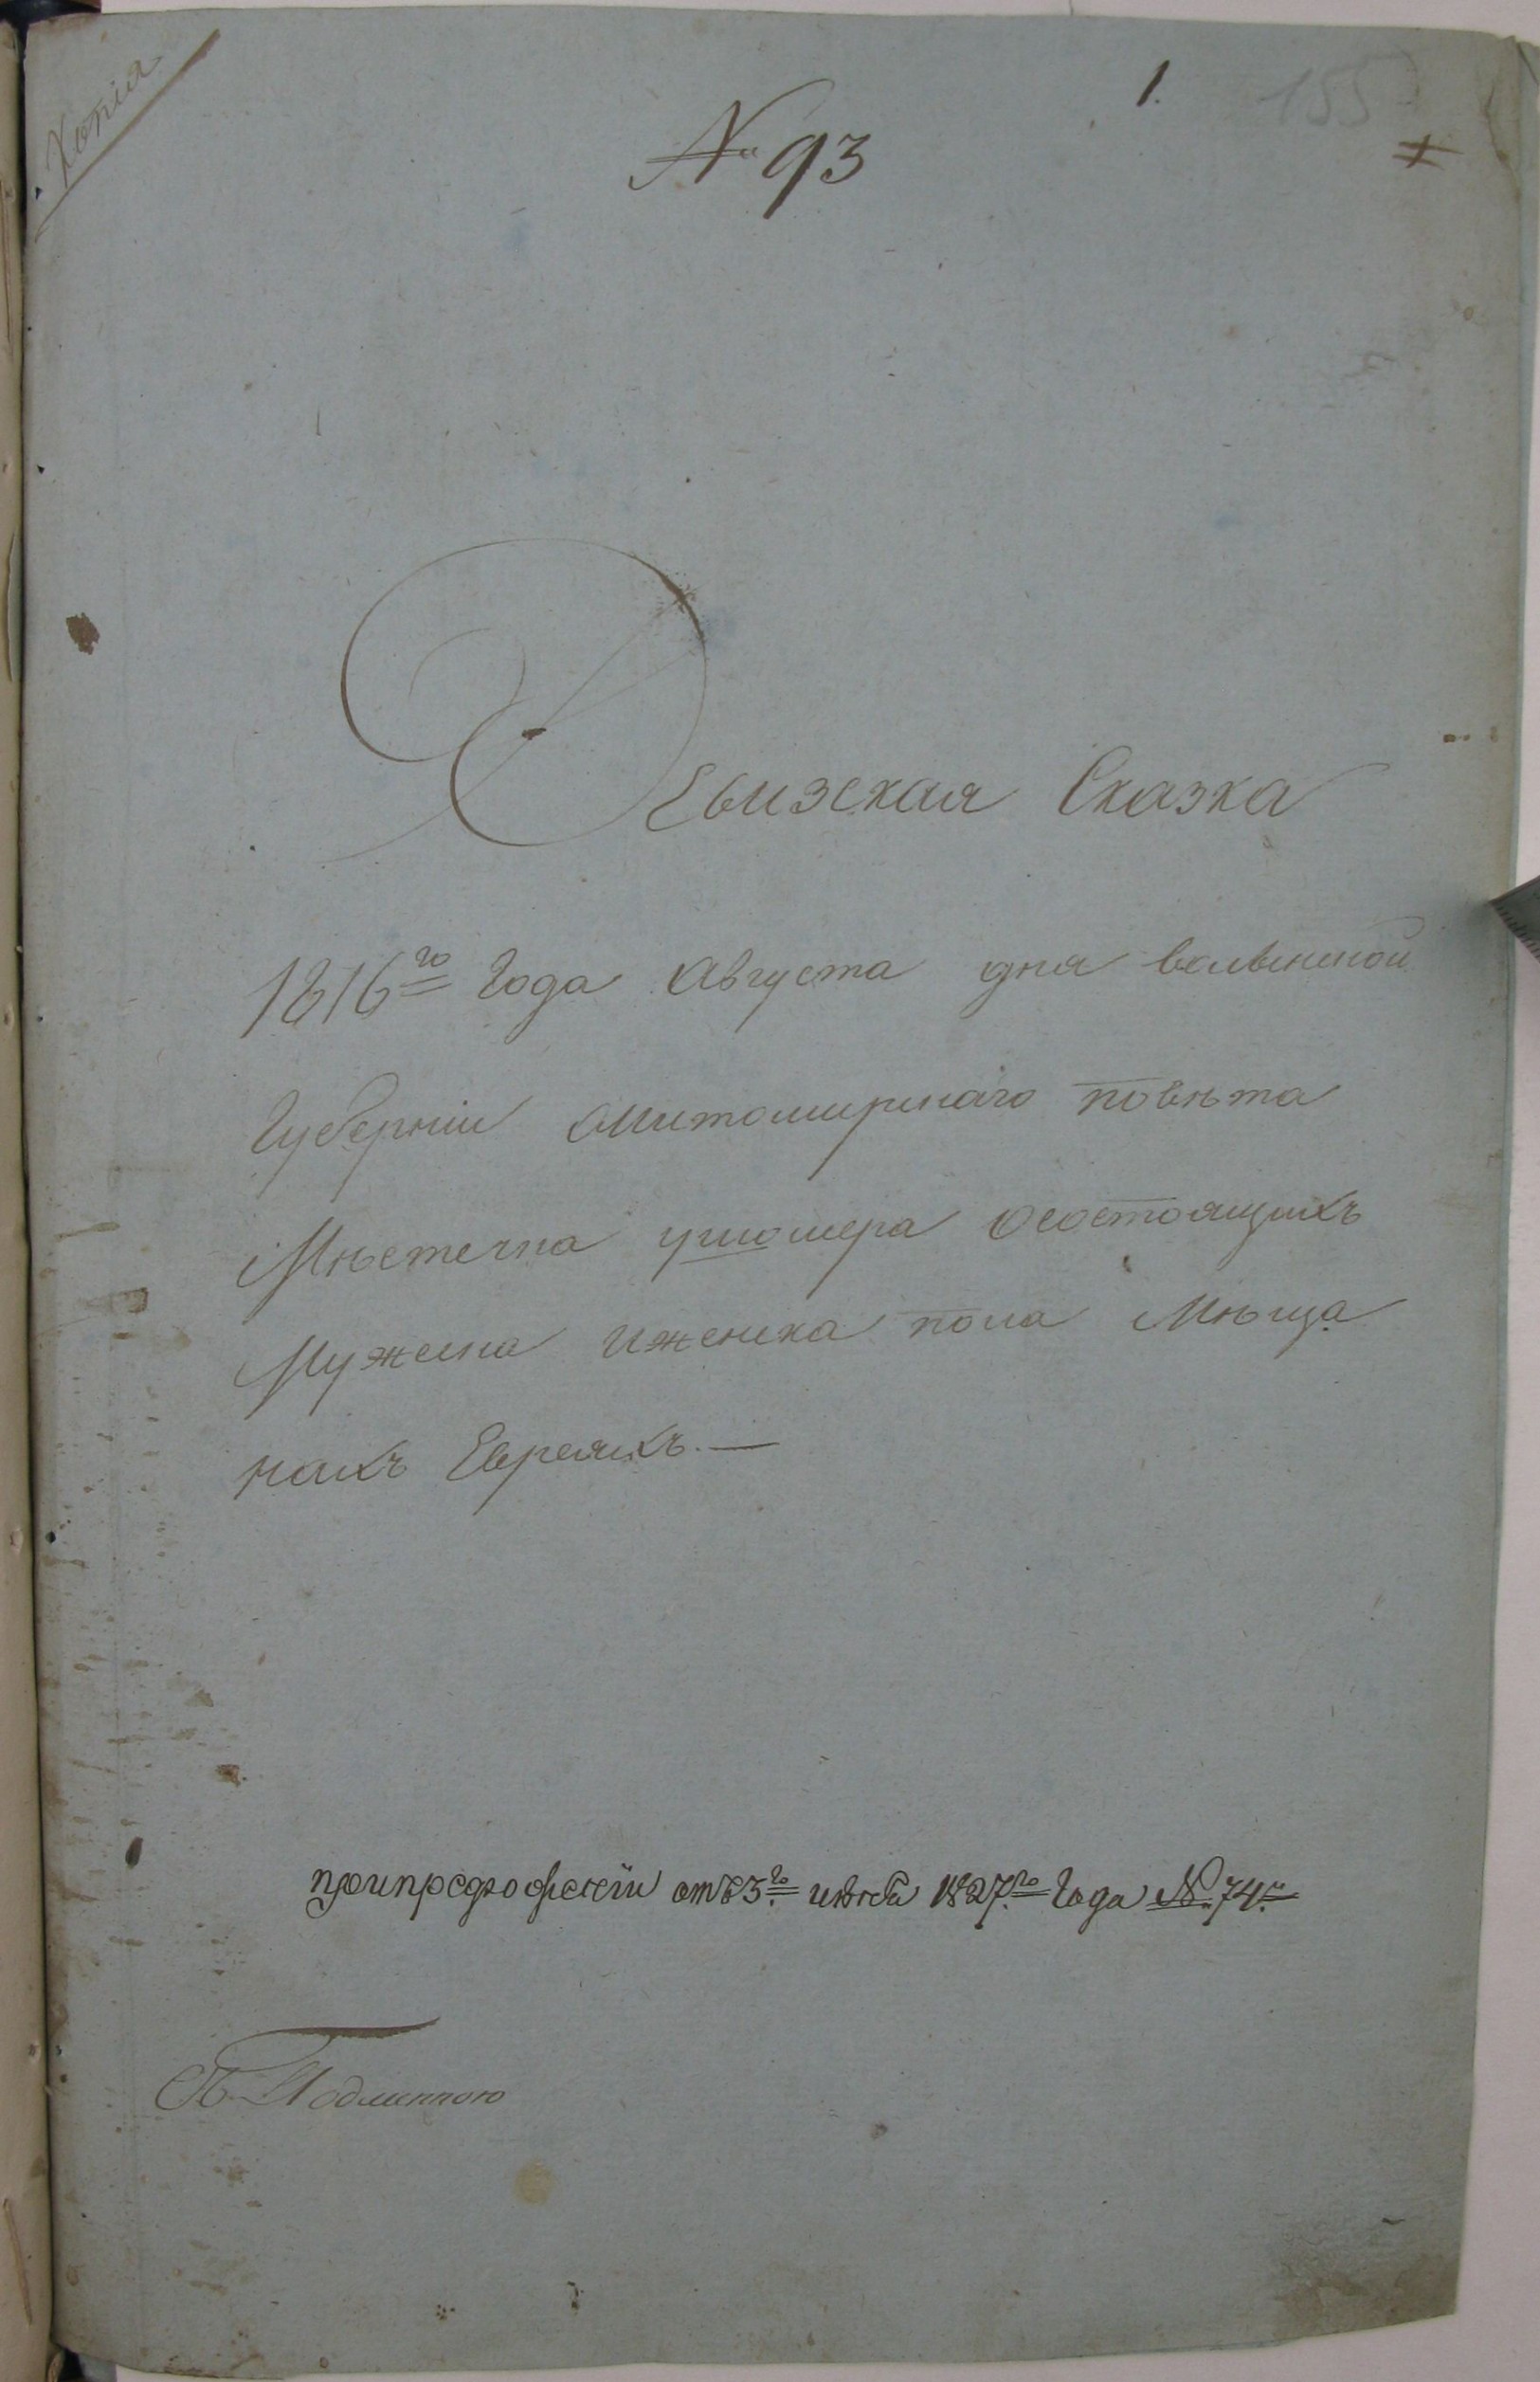 Копія
1.
155
№ 93
Ревизская Сказка
1816го Года Августа дня волынской
Губерніи Житомирскаго повѣта
Мѣстечка осостоящихъ
Мужеска иженска пола Мѣща
нахъ Евреяхъ.—
припредложеніи отъ 3го 1827го Года № 74.
Съ Подлинного